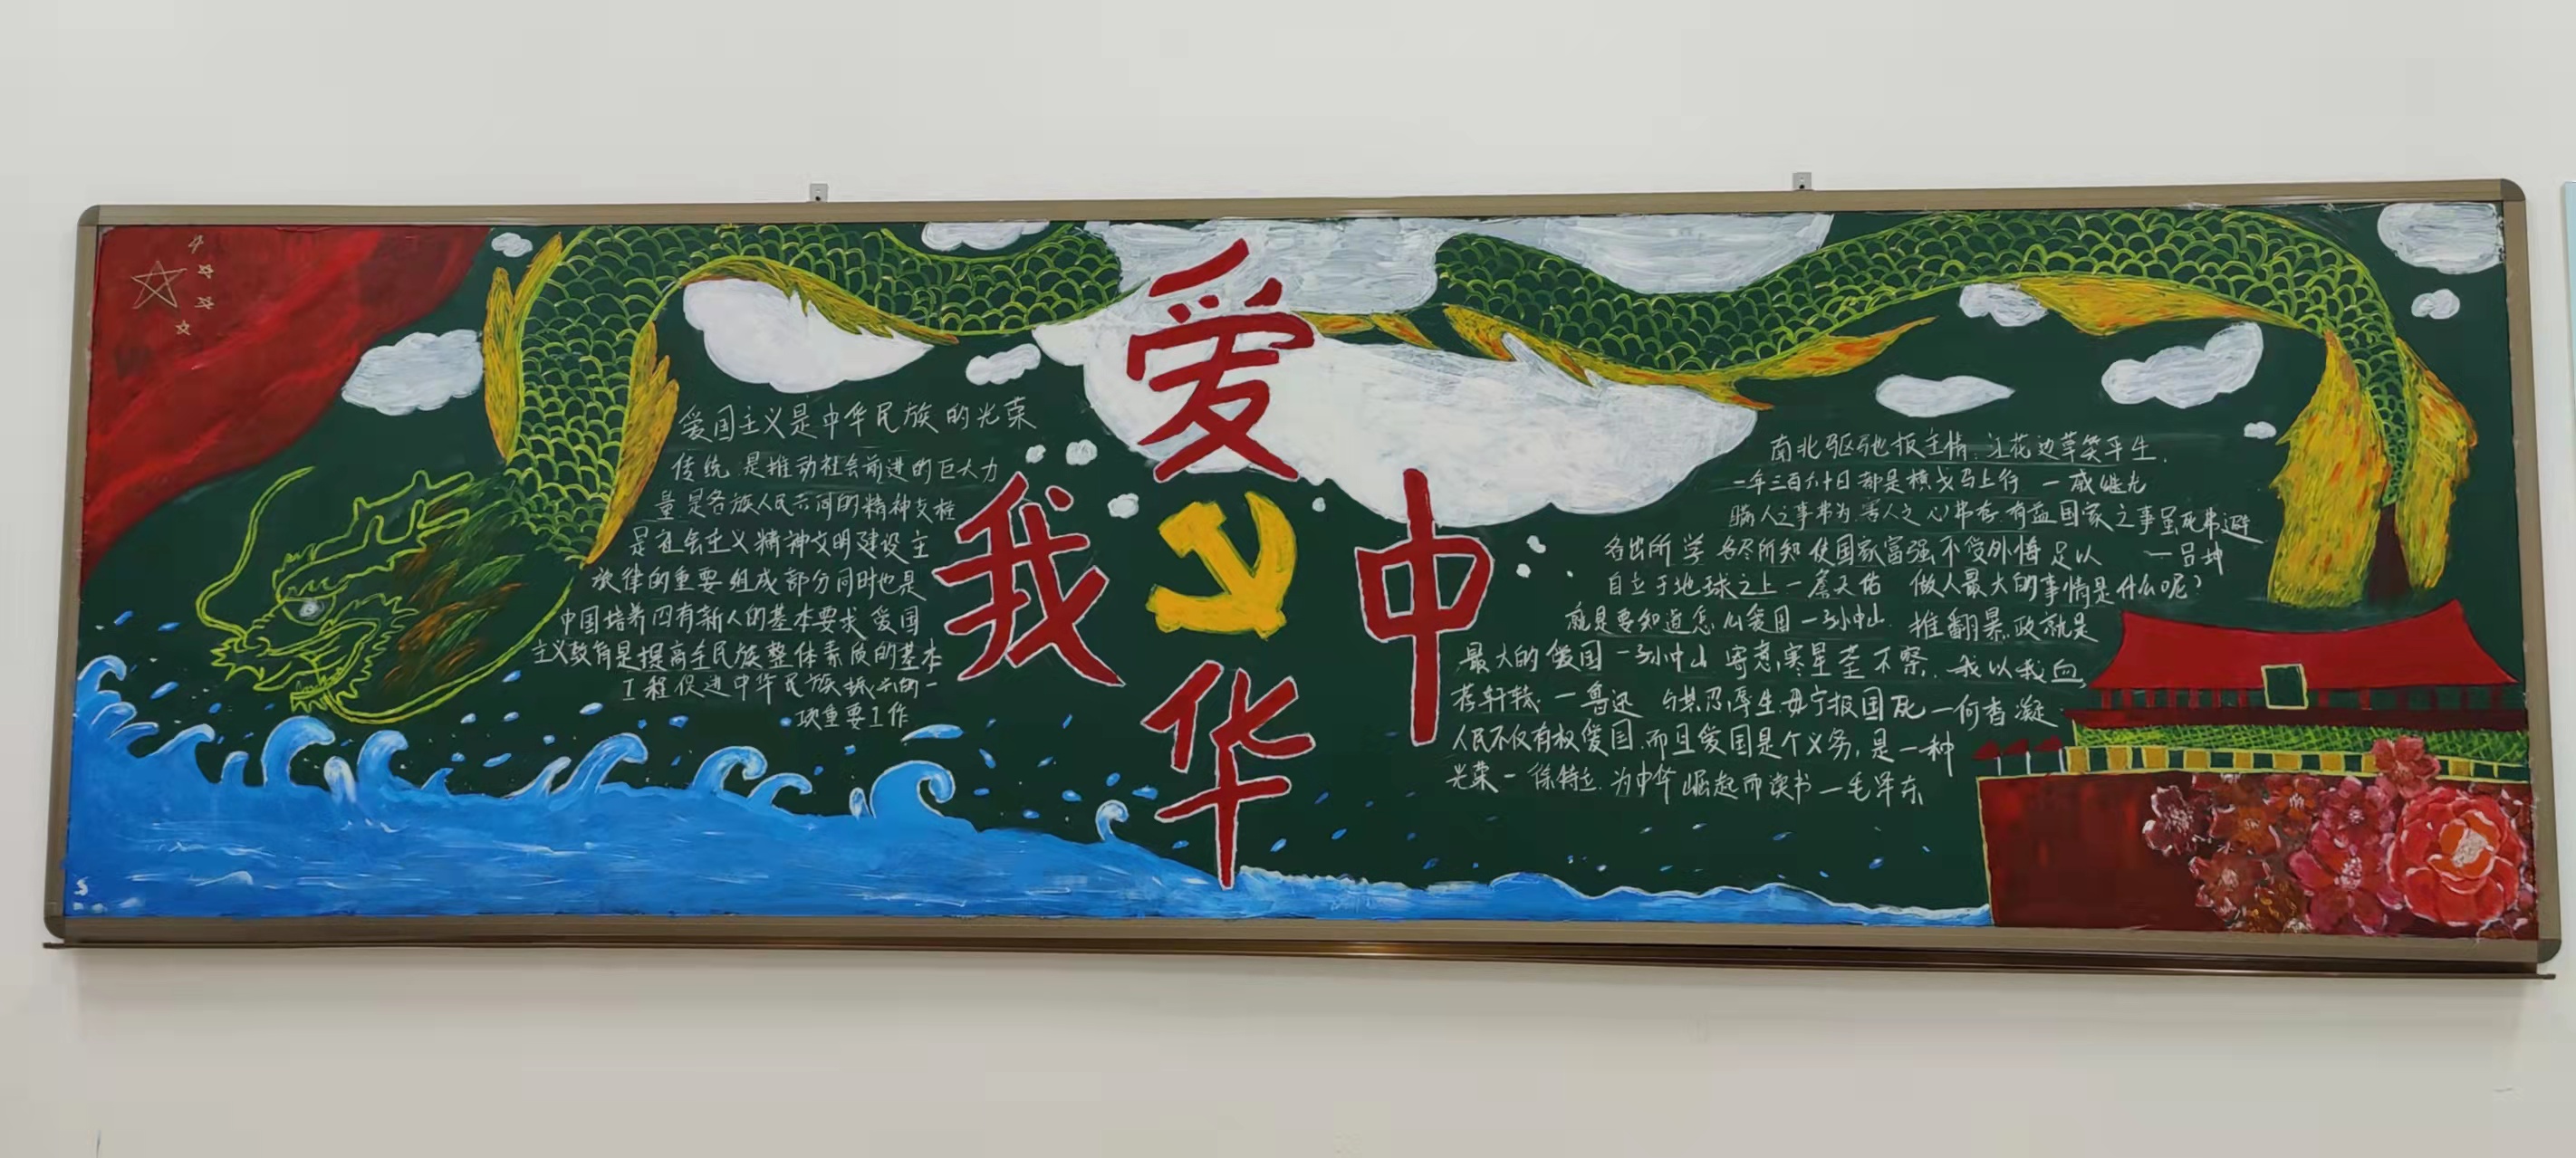 我爱中华
爱国主义是中华民族的光荣
传统 是推动社会前进的巨大力
量 是各族人民共同的精神支柱
是社会主义精神文明建设主
旋律的重要组成部分同时也是
中国培养四有新人的基本要求 爱国
主义教育是提高全民族整体素质的基本
工程 促进中华民族振兴的一
项重要工作
南北驱驰报主情,江花边草笑平生,
一年三百六十日都是横戈马上行 一戚继光
瞒人之事弗为,害人之心弗存,有益国家之事虽死弗避
一吕坤
各出所学 各尽所知 使国家富强不受外侮 足以
自立于地球之上一詹天佑 做人最大的事情是什么呢?
就是要知道怎么爱国一孙中山. 推翻暴政就是
最大的爱国一孙中山 寄意寒星荃不察,我以我血,
荐轩辕.一鲁迅 与其忍辱生毋宁报国死一何香凝
人民不仅有权爱国,而且爱国是个义务,是一种
光荣一徐特立.为中华崛起而读书一毛泽东